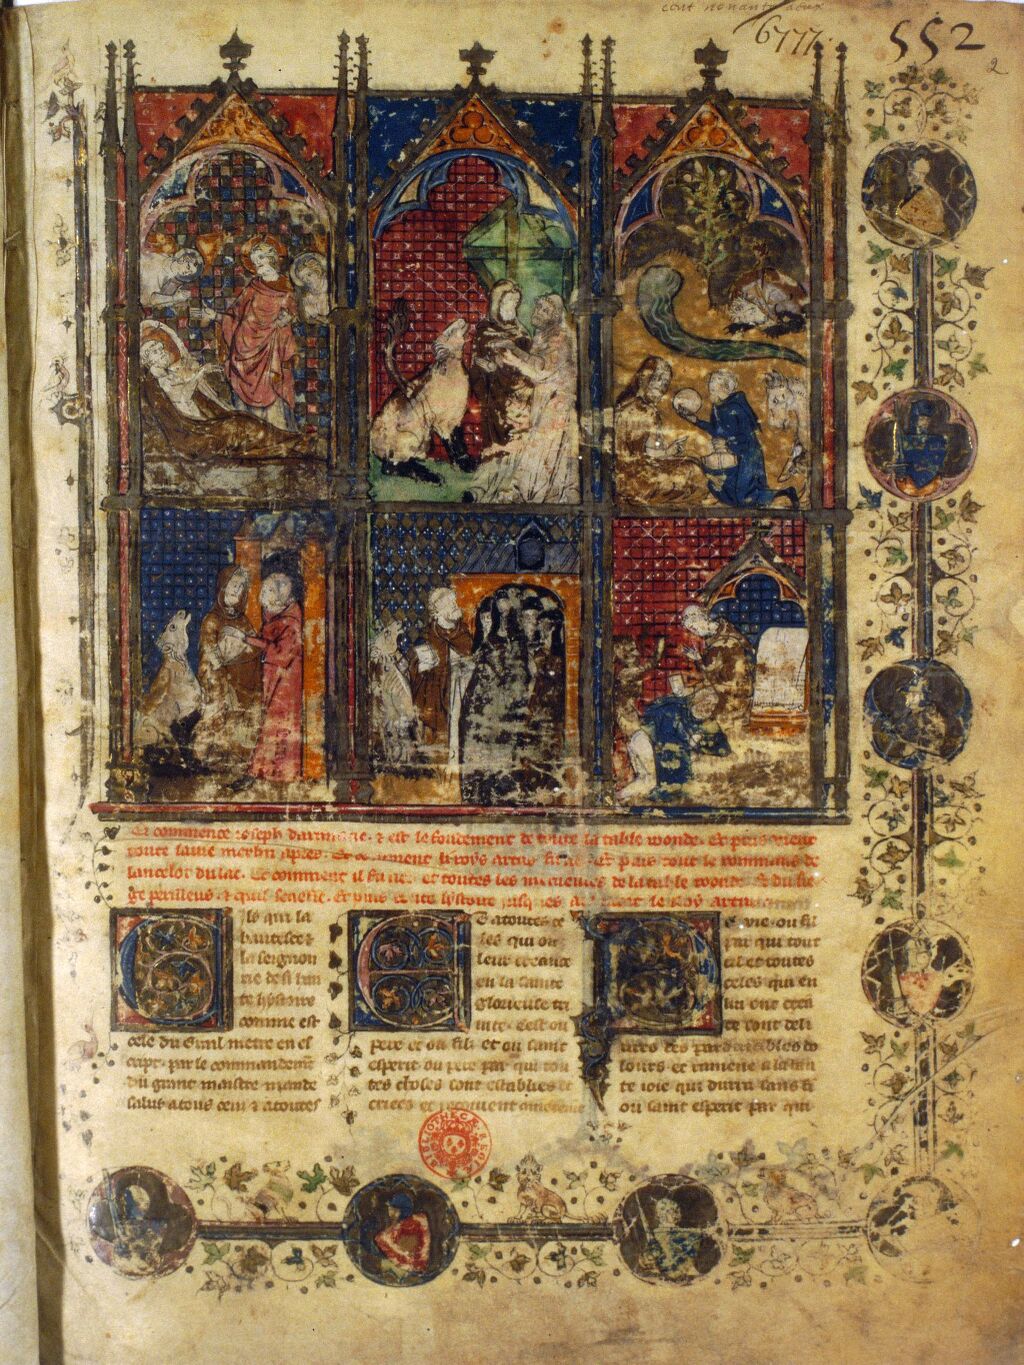 cent nonante deux
6777.
552
2
Ci commence ioseph darimacie. z est le fondement de toute la table ronde. Et puis vient
toute la vie merlin apres. Et comment li roys artus fu ne et puis tout le roumans de
lancelot du lac. Et comment il fu ne. et toutes les merueilles de la table ronde. z du sie
ge perilleus. z quil senefie. Et puis toute lystoire iusques a la mort le Roy artus
Cils qui la
hautesce z
la seignou
rie de si hau
te hystoire
comme est
cele du Graal metre en es
cript. par le commandement
du grant maistre mande
salus a tous ceus z a toutes
Et a toutes ce
les qui on
leur creance
en la sainte
glorieuse tri
nite. cest ou
pere et ou fil et ou saint
esperit ou pere par qui tou
tes choses sont establies et
criees et recoiuent
vie. ou fil
par qui tout
cil et toutes
celes qui en
lui ont creu
ce sont deli
ures des pardurables do
lours et ramene a la hau
te ioie qui durra sans fi
ou saint esperit par qui
BIBLIOTHECÆ REGIÆ